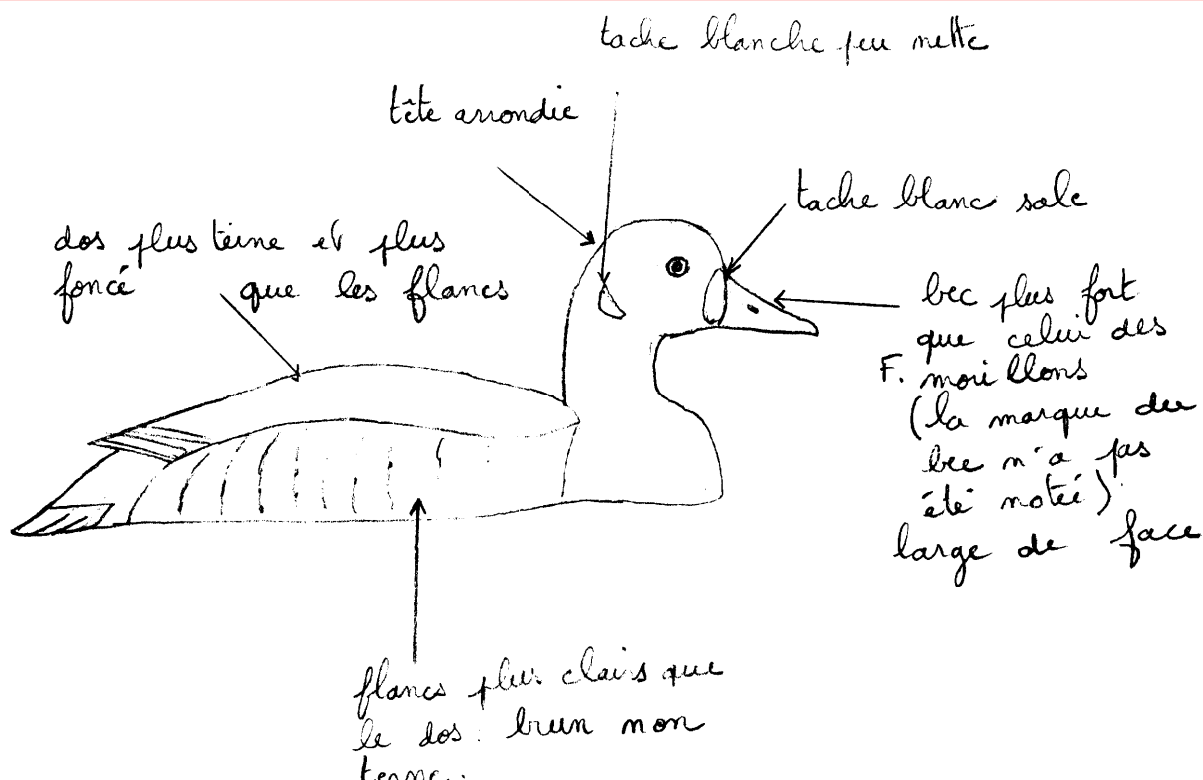 tache blanche peu nette
tête arrondie
tache blanc sale
dos plus teine et plus
foncé que les flancs
bec plus fort
que celui des
F. morillons
(la marque du
bec n'a pas
été notée)
large de face
flancs plus clairs que
le dos : brun non
terne.